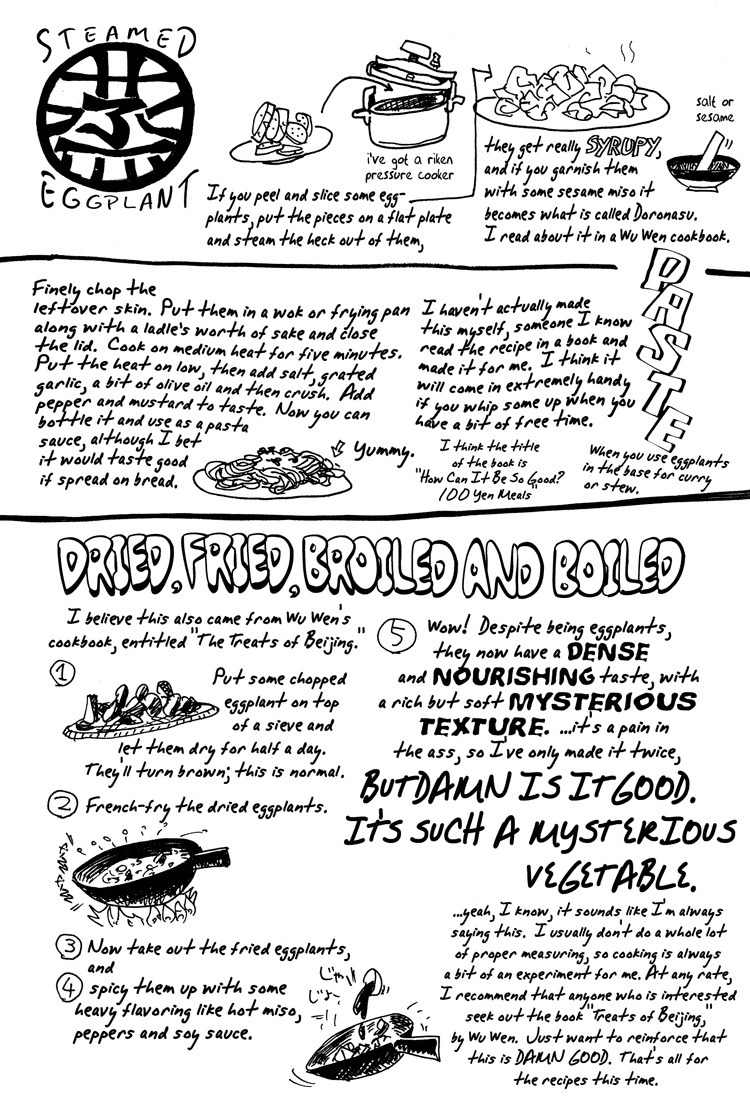 STEAMED
EGGPLANT
i've got a riken
pressure cooker
salt or
sesame
If you peel and slice some egg-
plants, put the pieces on a flat plate
and steam the heck out of them,
they get really SYRUPY,
and if you garnish them
with some sesame miso it
becomes what is called Doronasu.
I read about it in a Wu Wen cookbook.
PASTE
Finely chop the
leftover skin. Put them in a wok or frying pan
along with a ladle's worth of sake and close
the lid. Cook on medium heat for five minutes.
Put the heat on low, then add salt, grated
garlic, a bit of olive oil and then crush. Add
pepper and mustard to taste. Now you can
bottle it and use as a pasta
sauce, although I bet
it would taste good
if spread on bread.
Yummy.
I haven't actually made
this myself, someone I know
read the recipe in a book and
made it for me. I think it
will come in extremely handy
if you whip some up when you
have a bit of free time.
I think the title
of the book is
"How Can It Be So Good?
100 Yen Meals"
When you use eggplants
in the base for curry
or stew.
DRIED, FRIED, BROILED AND BOILED
I believe this also came from Wu Wen's
cookbook, entitled "The Treats of Beijing."
1 Put some chopped
eggplant on top
of a sieve and
let them dry for half a day.
They'll turn brown; this is normal.
2 French-fry the dried eggplants.
3 Now take out the fried eggplants,
and
4 spicy them up with some
heavy flavoring like hot miso,
peppers and soy sauce.
5 Wow! Despite being eggplants,
they now have a DENSE
and NOURISHING taste, with
a rich but soft MYSTERIOUS
TEXTURE. ...it's a pain in
the ass, so I've only made it twice,
BUT DAMN IS IT GOOD.
IT'S SUCH A MYSTERIOUS
VEGETABLE.
...yeah, I know, it sounds like I'm always
saying this. I usually don't do a whole lot
of proper measuring, so cooking is always
a bit of an experiment for me. At any rate,
I recommend that anyone who is interested
seek out the book "Treats of Beijing,"
by Wu Wen. Just want to reinforce that
this is DAMN GOOD. That's all for
the recipes this time.